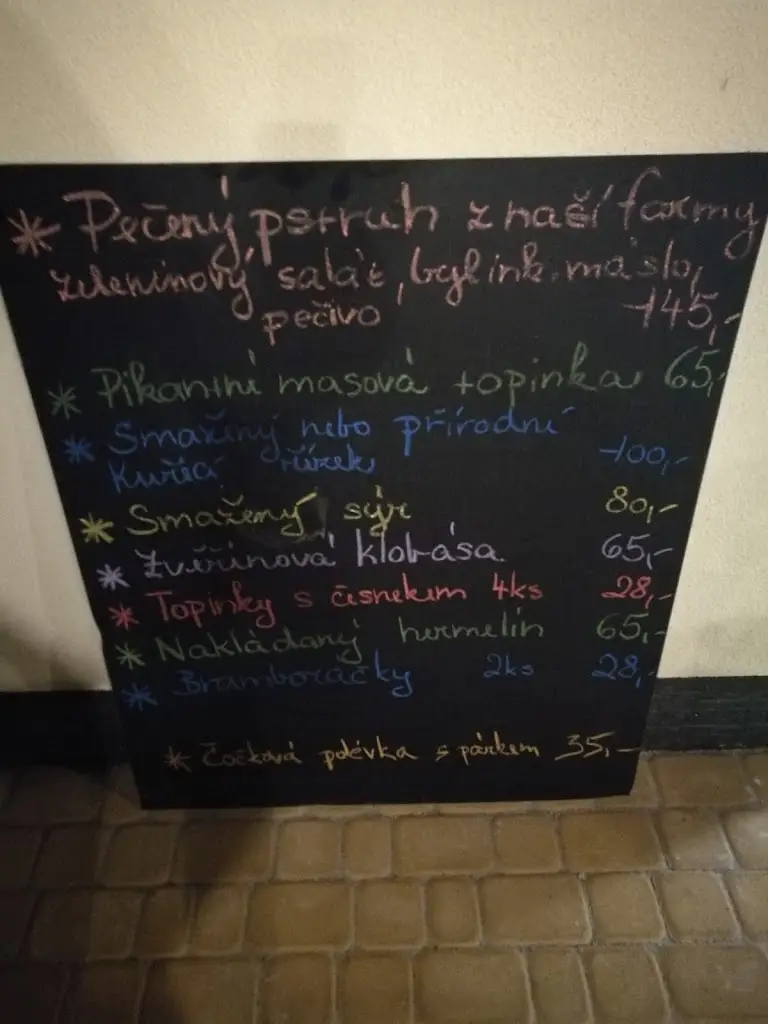 * Pečený pstruh z naší farmy
zeleninový salát, bylink. máslo,
pečivo 145,-
* Pikantní masová topinka 65,-
* Smažený nebo přírodní
Kuřecí řízek 100,-
* Smažený sýr 80,-
* Zvěřinová klobása 65,-
* Topinky s česnekem 4ks 28,-
* Nakládaný hermelín 65,-
* Bramboráčky 2ks 28,-
* Čočková polévka s párkem 35,-